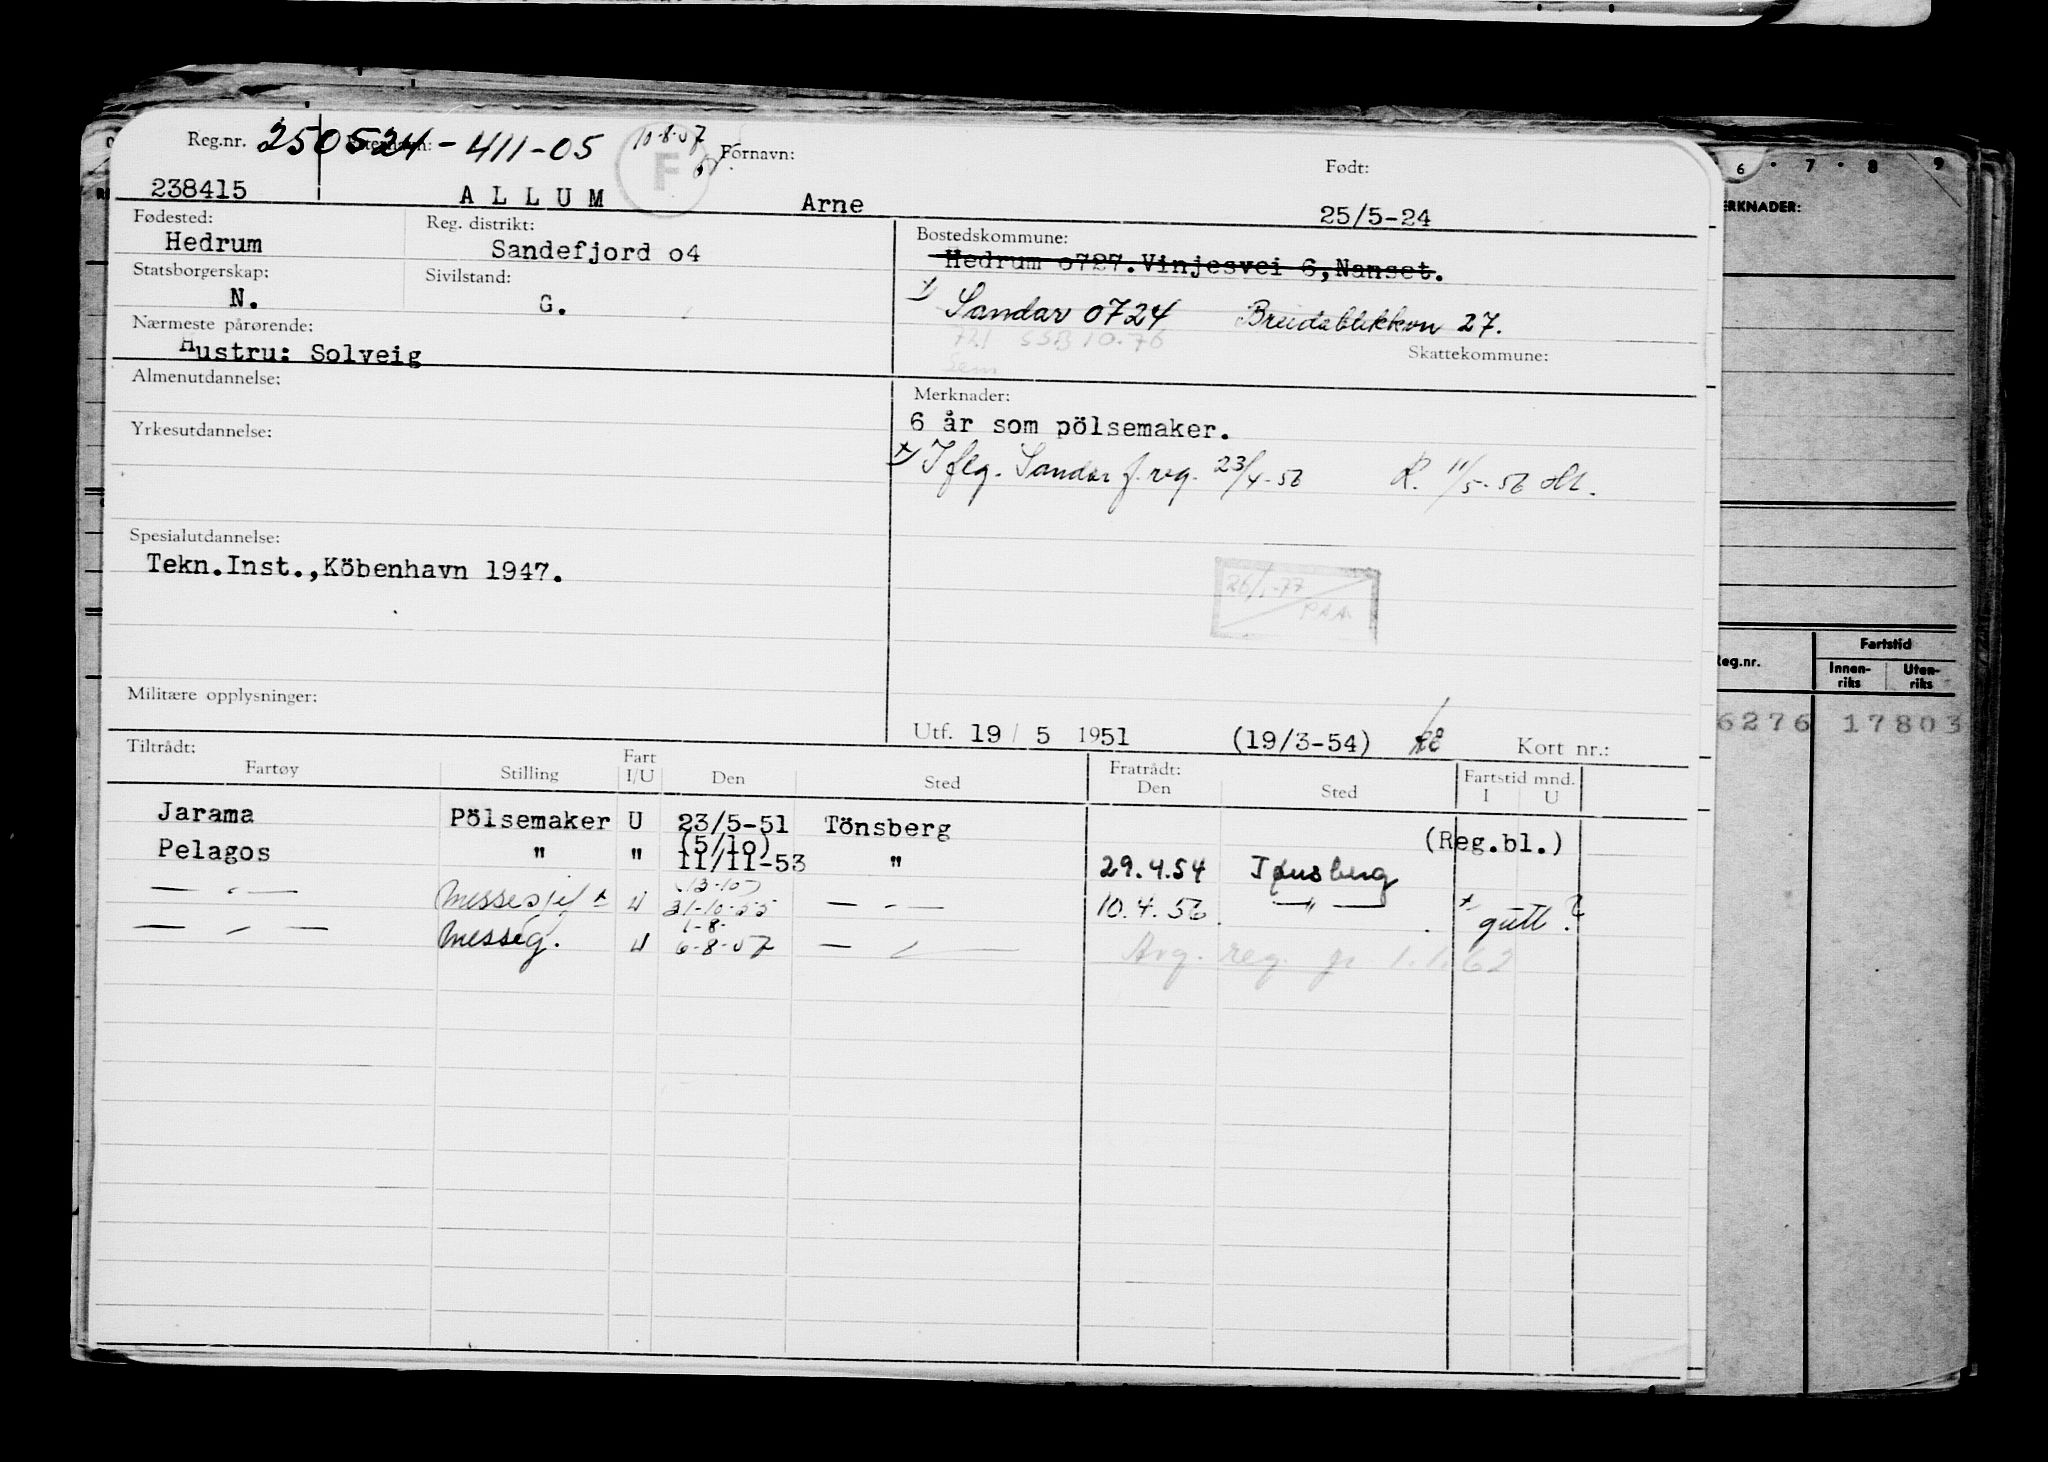 Reg.nr. 250524-411-05 10-8-57 Fornavn: Født:
238415 ALLUM F Arne 25/5-24
Fødested: Reg. distrikt: Bostedskommune:
Hedrum Sandefjord o4 Hedrum o727.Vinjesvei 6,Nanset.
Statsborgerskap: Sivilstand:
N. G. x) Sandar 0724 Breidablikkvn 27.
Nærmeste pårørende: 721 SSB 10.76
Hustru: Solveig Sem Skattekommune:
Almenutdannelse: Merknader:
6 år som pölsemaker.
Yrkesutdannelse:
x) Iflg. Sandar f.reg. 23/4-56 R. 11/5-56
Spesialutdannelse:
Tekn.Inst.,Köbenhavn 1947.
26/1-77
PAA
Militære opplysninger:
Utf. 19 / 5 1951 (19/3-54) Kort nr.:
Tiltrådt: Fratrådt:
Fartøy Stilling Fart I/U Den Sted Den Sted Fartstid mnd. I U
Jarama Pölsemaker U 23/5-51 Tönsberg (Reg.bl.)
(5/1o)
Pelagos " " 11/11-53 " 29.4.54 Tønsberg
(13-10)
— " — U 31-10-55 — " — 10.4.56 — " — x gutt ?
1-8-
— " — Messeg. U 6-8-57 — " — Avg. reg. pr 1.1.62
6 . 7 . 8 9
ERKNADER:
Reg.nr. Fartstid
Innen-riks Uten-riks
6276 17803